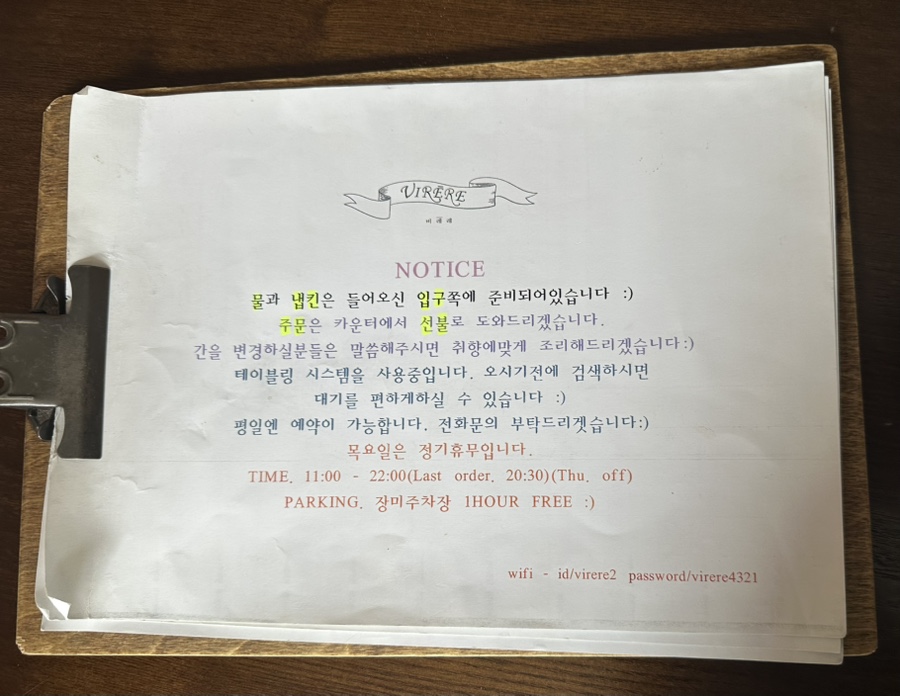 VIRERE
비레레
NOTICE
물과 냅킨은 들어오신 입구쪽에 준비되어있습니다 :)
주문은 카운터에서 선불로 도와드리겠습니다.
간을 변경하실분들은 말씀해주시면 취향에맞게 조리해드리겠습니다:)
테이블링 시스템을 사용중입니다. 오시기전에 검색하시면
대기를 편하게하실 수 있습니다 :)
평일엔 예약이 가능합니다. 전화문의 부탁드리겟습니다:)
목요일은 정기휴무입니다.
TIME. 11:00 - 22:00(Last order. 20:30)(Thu. off)
PARKING. 장미주차장 1HOUR FREE :)
wifi - id/virere2 password/virere4321